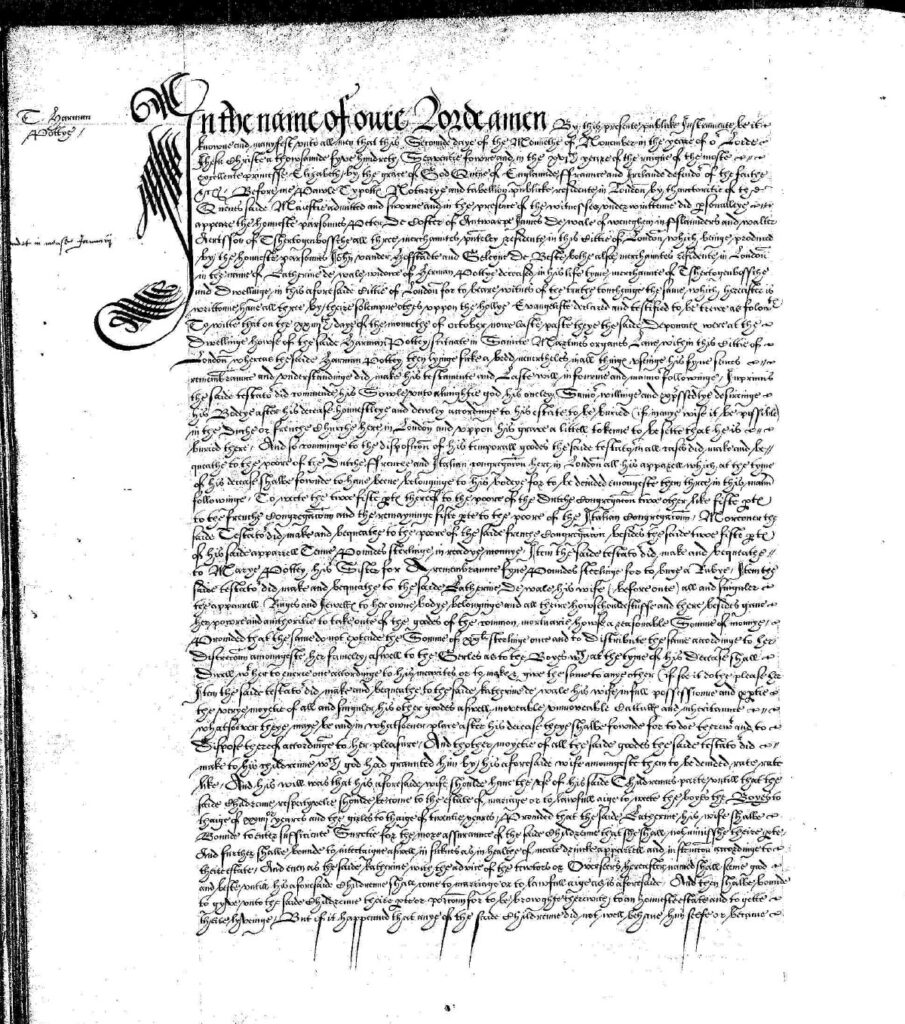 T. Harman
Pottye /
In the name of oure Lorde amen By this presente publike Instrumente be it
knowne and manyfest unto all men that this Seconde daye of the Monethe of November in the yeare of or Lorde
Jhesu Christe a thowsande fyve hundreth Seaventie fowre and in the xvjth yeare of the raigne of the moste
excellente princesse Elizabeth by the grace of God Quene of Englande ffraunce and Irelande defendor of the faithe
Before me Pawle Typotte Notarye and tabellion publike residente in London by thauctoritie of the
Quenes saide Maiestie admitted and sworne and in the presence of the witnesses underwritten did personallye
appeare the honneste parsonnes Peter De Coster of Antwarpe James De wale of in fflaunders and walter
Aertsson of Tshertogenbosche all three merchauntes residente in this Cittie of London which beinge produced
by the honneste parsonnes John vander Hofstadt and Geleyne De Beste bothe also merchauntes residente in London
in the name of Catherine de wale widowe of Herman Pottye deceased in his life tyme merchaunte of Tshertogenbosche
and Dwellinge in this aforesaide Cittie of London for to beare witnes of the truthe touchinge the same which hereafter is
writtone have all three by theire solempne othes uppon the hollye Evangelistes declared and testified to be trewe as foloweth
To witte that on the xxiijth daye of the monethe of october nowe laste paste theye the saide Deponentes were at the
Dwellinge house of the saide Harman Pottey scituate in Saincte Martines orgaines Lane within this Cittie of
London whereas the saide Harman Pottey then lyinge sicke a bedd neverthelesse in all thinges usinge his fyve sences
remembraunce and understandinge did make his testamente and Laste will in fourme and manner followinge / Inprimis
the saide testator did commende his Sowle unto almightie god his onelye Savior willinge and expressedlye desiringe
his Bodye after his decease honnestlye and dewley accordinge to his estate to be buried (if in anye wise it be possible)
in the Dutche or frenche Churche here in London and uppon his grave a littell tokenne to be sette that he is
buried there / And so comminge to the disposition of his temporall goodes the saide testator in all cases did make and be-
queathe to the poore of the Dutche ffrenche and Italian congregacion here in London all his apparell which at the tyme
of his decease shalbe founde to have beene belonginge to his bodye for to be devided emongeste them three in this manner
followinge / To wete the twoe fifte partes thereof to the poore of the Dutche Congregacion twoe other like fifte partes
to the frenche Congregacion and the remayninge fifte parte to the poore of the Italian Congregacion / Moreover the
saide Testator did make and bequeathe to the poore of the saide frenche Congregacion besides the saide twoe fifte partes
of his saide apparrell Tenne Poundes sterlinge in readye monnye / Item the saide testator did make and bequeathe
to Marye Pottey his Sister for A remembraunce fyve Poundes sterlinge for to buye a Rubye / Item the
saide testator did make and bequeathe to the saide Catherine De wale his wife (before oute) all and singuler
the apparrell Ringes and Jewelles to her owne bodye belonginge and all theire howsholdestuffe and there besides gave
her power and authoritie to take oute of the goodes of the common mortuarie house a reasonable Somme of monnye /
Provided that the same do not extende the Somme of sterlinge once and to Distribute the same accordinge to her
Discretion amongeste her famelye aswell to the Gerles as to the Boyes which at the tyme of his Decease shall
Dwell with her to everie one accordinge to his merites or to make & give the same to any other (if so it dothe please her)
Item the saide testator did make and bequeathe to the saide Katerine de wale his wife in full possessionne and
the verye moytie of all and singuler his other goodes aswell moveable unmoveable Cattailes and inheritaunce
whatsoever theye maye be and in whatsoever place after his decease they shalbe founde for to doe therewith and to
Dispose thereof accordinge to her pleasure / And thother moytie of all the saide goodes the saide testator did
make to his childrenne which god had graunted him by his aforesaide wife amongeste them to be devided rate rate
like / And his will was that his aforesaide wife shoulde have the use of his saide Childrennes parte untill that the
saide childrenne respectyvelie shoulde be come to the estate of mariage or to lawfull aige to wete the boyes the Boyes to
thaige of yeares and the girles to thaige of twentie yeares / Provided that the saide Catherine his wife shalbe
Bounde to enter sufficiente Suertie for the more assuraunce of the saide childrenne that she shall not minisshe theire parte
And further shalbe bounde to intertaigne aswell in sicknes as in healthe of meate drinke apparell and instruction accordinge to
theire estate / And even as the saide Katherine with the advise of the tutors or Overseers hereafter named shall seeme good
and beste untill his aforesaide childrenne shall come to marriage or to lawfull aige as is aforesaide / And then shalbe bounde
to gyve unto the saide childrenne theire parte or portion for to be broughte therewith to an honneste estate and to gette
theire lyvinge / But if it happenned that anye of the saide Childrenne did not well behave him selfe or became